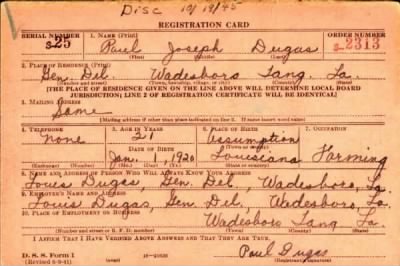 Disc 10/19/45
REGISTRATION CARD
SERIAL NUMBER 1. NAME (Print) ORDER NUMBER
S 25 Paul Joseph Dugas S-2313
(First) (Middle) (Last)
2. PLACE OF RESIDENCE (Print)
Gen. Del. Wadesboro Tang. La.
(Number and street) (Town, township, village, or city) (County) (State)
[THE PLACE OF RESIDENCE GIVEN ON THE LINE ABOVE WILL DETERMINE LOCAL BOARD
JURISDICTION; LINE 2 OF REGISTRATION CERTIFICATE WILL BE IDENTICAL]
3. MAILING ADDRESS
Same
[Mailing address if other than place indicated on line 2. If same insert word same]
4. TELEPHONE 5. AGE IN YEARS 6. PLACE OF BIRTH 7. OCCUPATION
none 21 Assumption
DATE OF BIRTH (Town or county)
Jan. 1, 1920 Louisiana Farming
(Exchange) (Number) (Mo.) (Day) (Yr.) (State or country)
8. NAME AND ADDRESS OF PERSON WHO WILL ALWAYS KNOW YOUR ADDRESS
Louis Dugas, Gen. Del., Wadesboro, La.
9. EMPLOYER'S NAME AND ADDRESS
Louis Dugas, Gen. Del., Wadesboro, La.
10. PLACE OF EMPLOYMENT OR BUSINESS
Wadesboro Tang La.
(Number and street or R. F. D. number) (Town) (County) (State)
I AFFIRM THAT I HAVE VERIFIED ABOVE ANSWERS AND THAT THEY ARE TRUE.
D. S. S. Form 1 Paul Dugas
(Revised 6-9-41) 16—21630